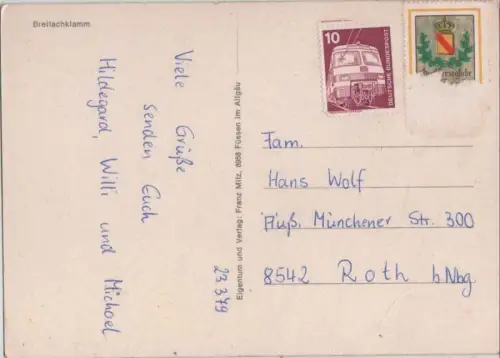 Breitachklamm.
Viele Grüße
senden Euch
Hildegard, Willi und Michael
23 3 79
Eigentum und Verlag: Franz Milz, 8958 Füssen im Allgäu
10
DEUTSCHE BUNDESPOST
Fam.
Hans Wolf
Äuß. Münchener Str. 300
8542 Roth b Nbg.